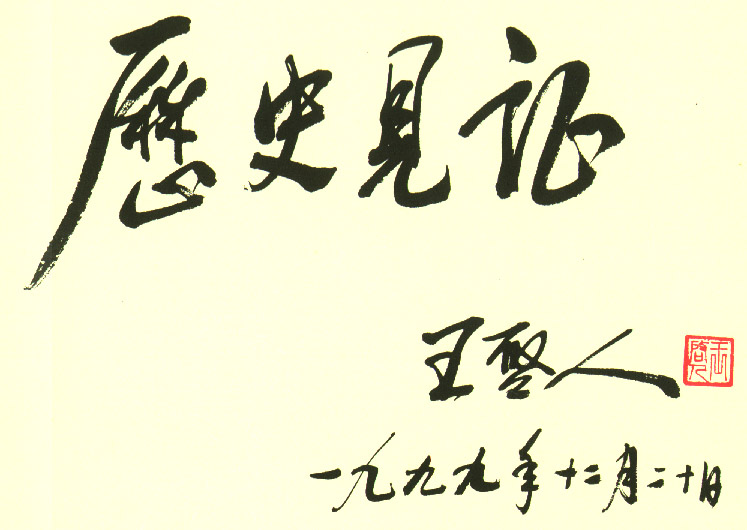 歷史見证
王啓人
一九九九年十二月二十日